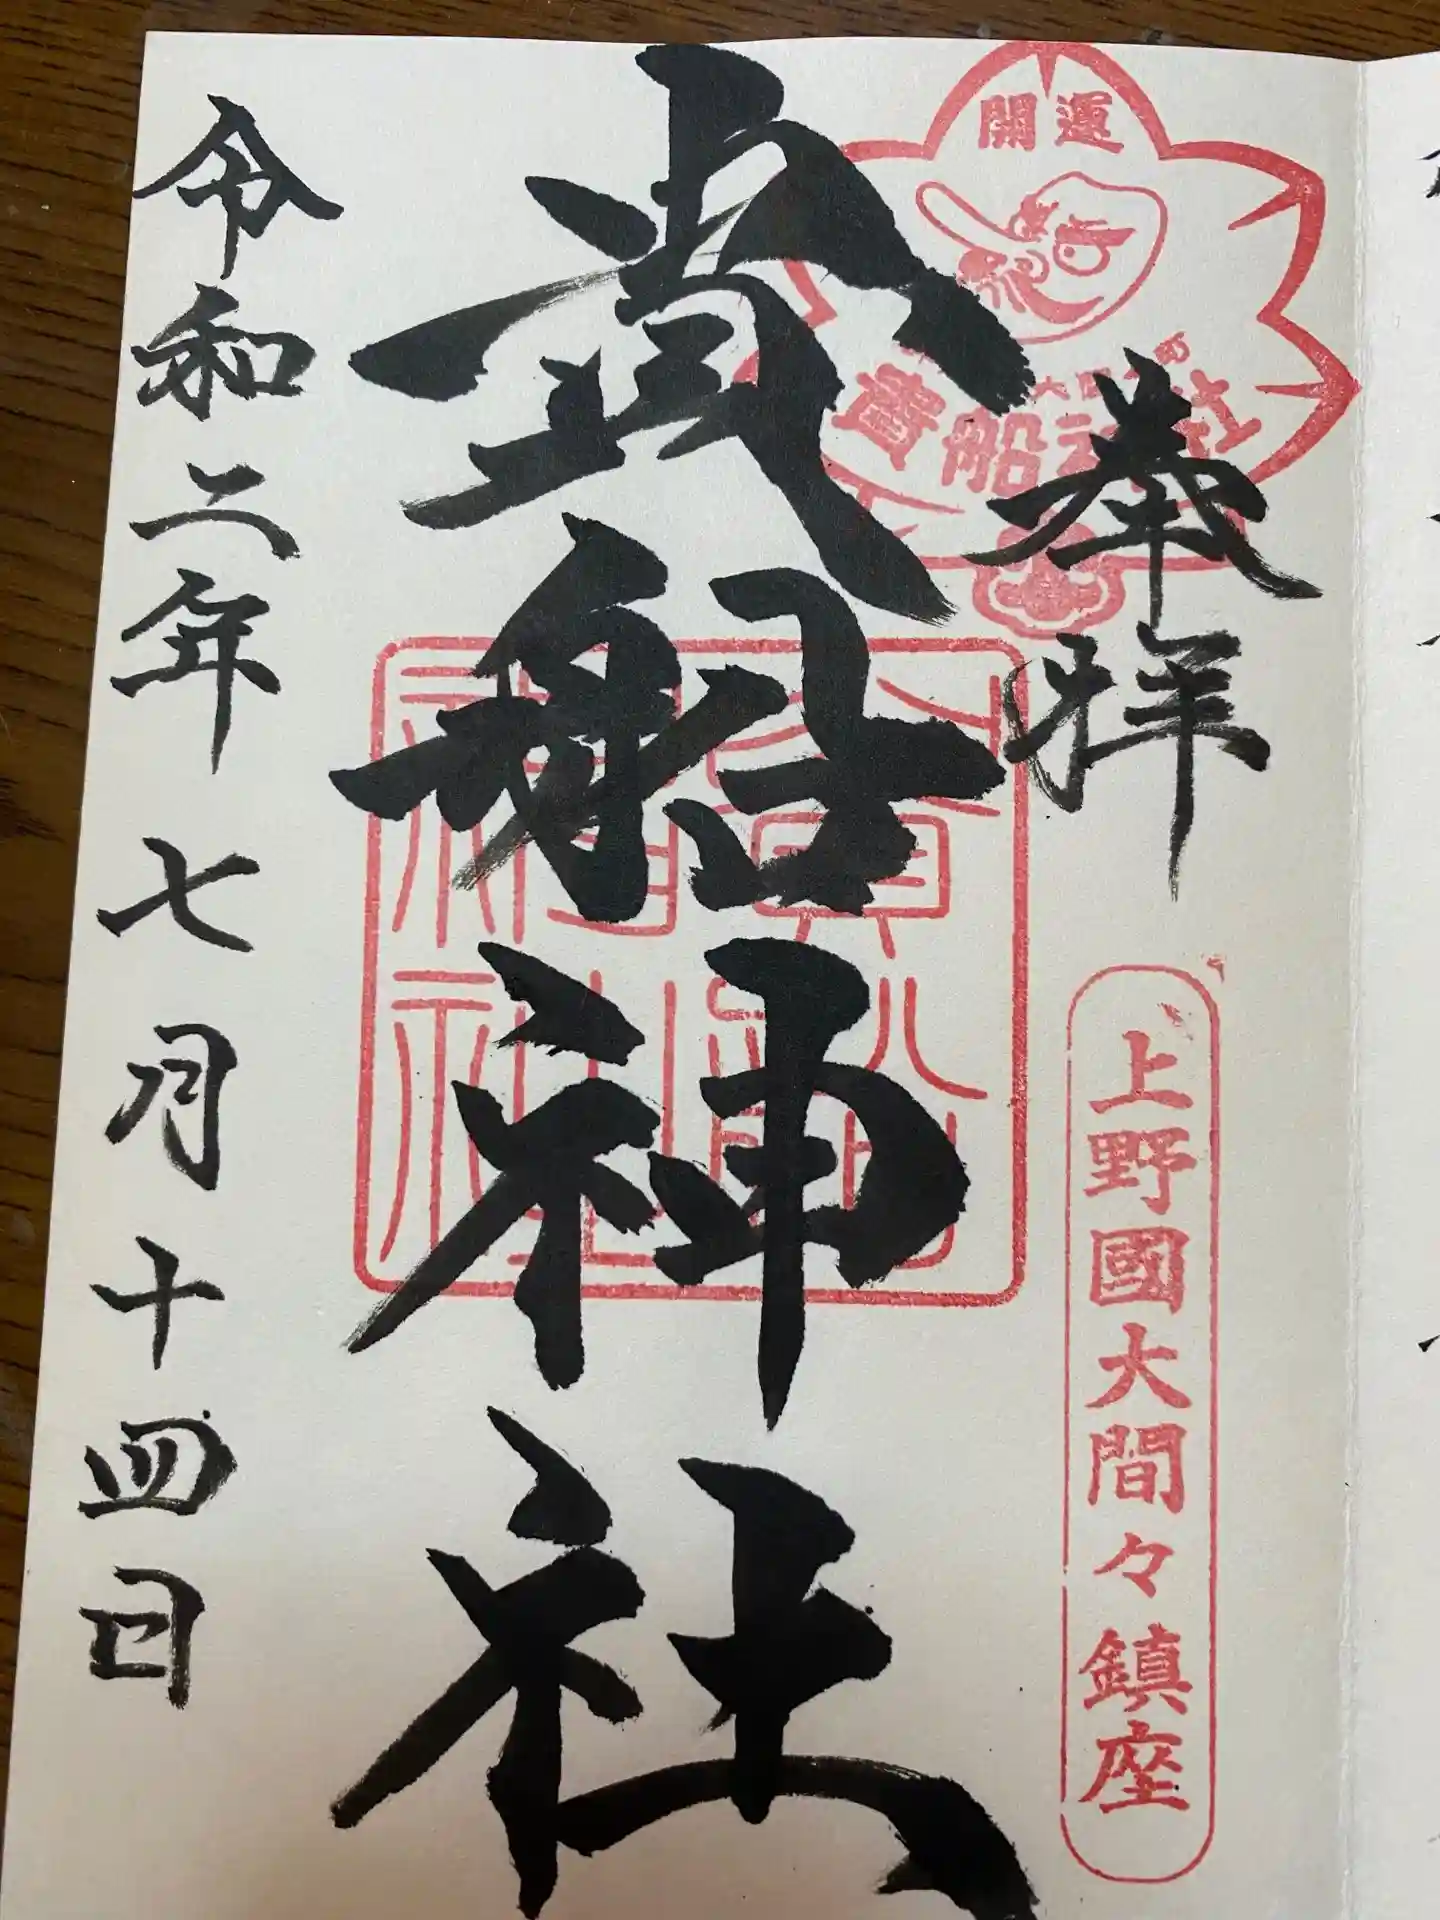 開運
貴船神社
奉拝
上野國大間々鎮座
貴船神社
令和二年七月十四日